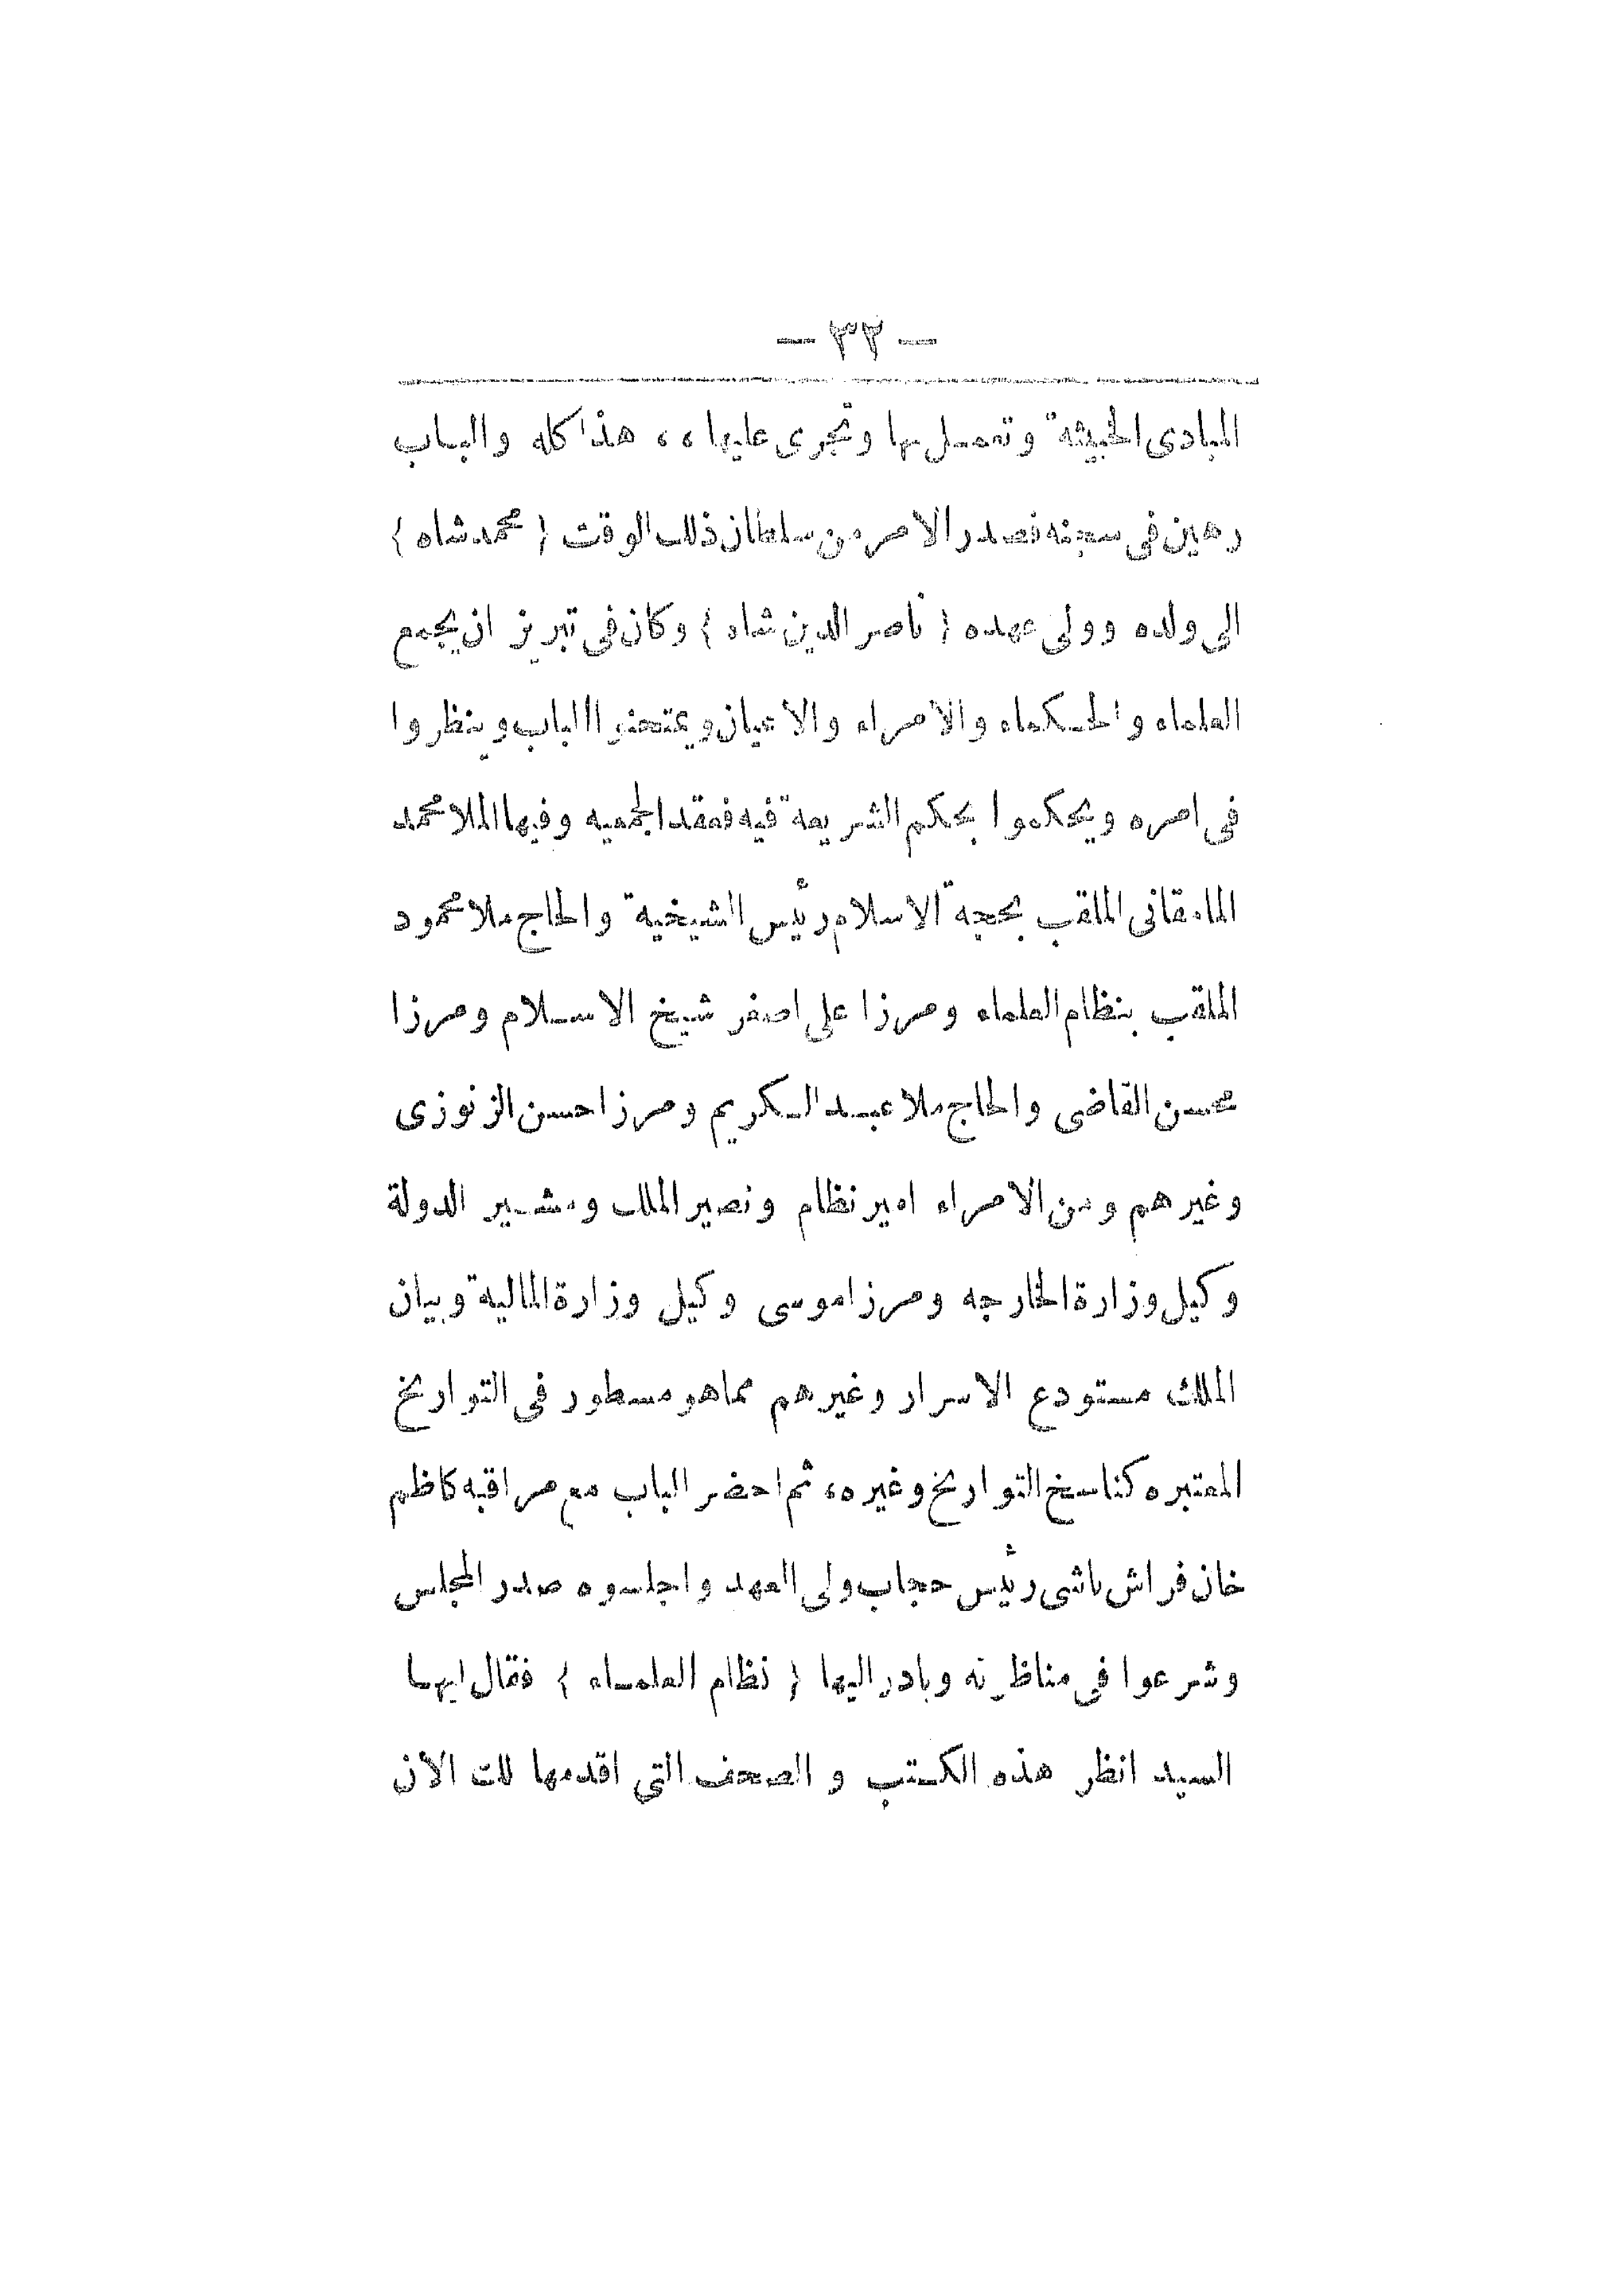 — ٣٣ —
المبادى الخبيثة وتعمل بها وتجرى عليها ،، هذا كله والباب
رهين فى سجنه فصدر الامر من سلطان ذلك الوقت { محمد شاه }
الى ولده وولى عهده { ناصر الدين شاه } وكان فى تبريز ان يجمع
العلماء والحكماء والامراء والاعيان ويمتحنوا الباب وينظروا
فى امره ويحكموا بحكم الشريعة فيه فعقد الجمعيه وفيها الملا محمد
المامقانى الملقب بحجة الاسلام رئيس الشيخية والحاج ملا محمود
الملقب بنظام العلماء ومرزا على اصغر شيخ الاسلام ومرزا
محسن القاضى والحاج ملا عبد الكريم ومرزا حسن الزنوزى
وغيرهم ومن الامراء امير نظام ونصير الملك ومشير الدولة
وكيل وزارة الخارجه ومرزا موسى وكيل وزارة المالية وبيان
الملك مستودع الاسرار وغيرهم مما هو مسطور فى التواريخ
المعتبره كناسخ التواريخ وغيره، ثم احضر الباب مع مراقبه كاظم
خان فراش باشى رئيس حجاب ولى العهد واجلسوه صدر المجلس
وشرعوا فى مناظرته وبادر اليها { نظام العلماء } فقال ايها
السيد انظر هذه الكتب و الصحف التى اقدمها لك الان